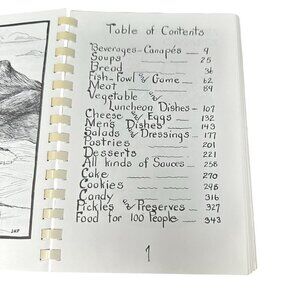 Table of Contents
Beverages-Canapés — 9
Soups — 25
Bread — 36
Fish-Fowl & Game — 62
Meat — 84
Vegetable &
Luncheon Dishes — 107
Cheese & Eggs — 132
Mens Dishes — 143
Salads & Dressings — 177
Pastries — 201
Desserts — 221
All Kinds of Sauces — 258
Cake — 270
Cookies — 298
Candy — 316
Pickles & Preserves — 327
Food for 100 People — 343
1